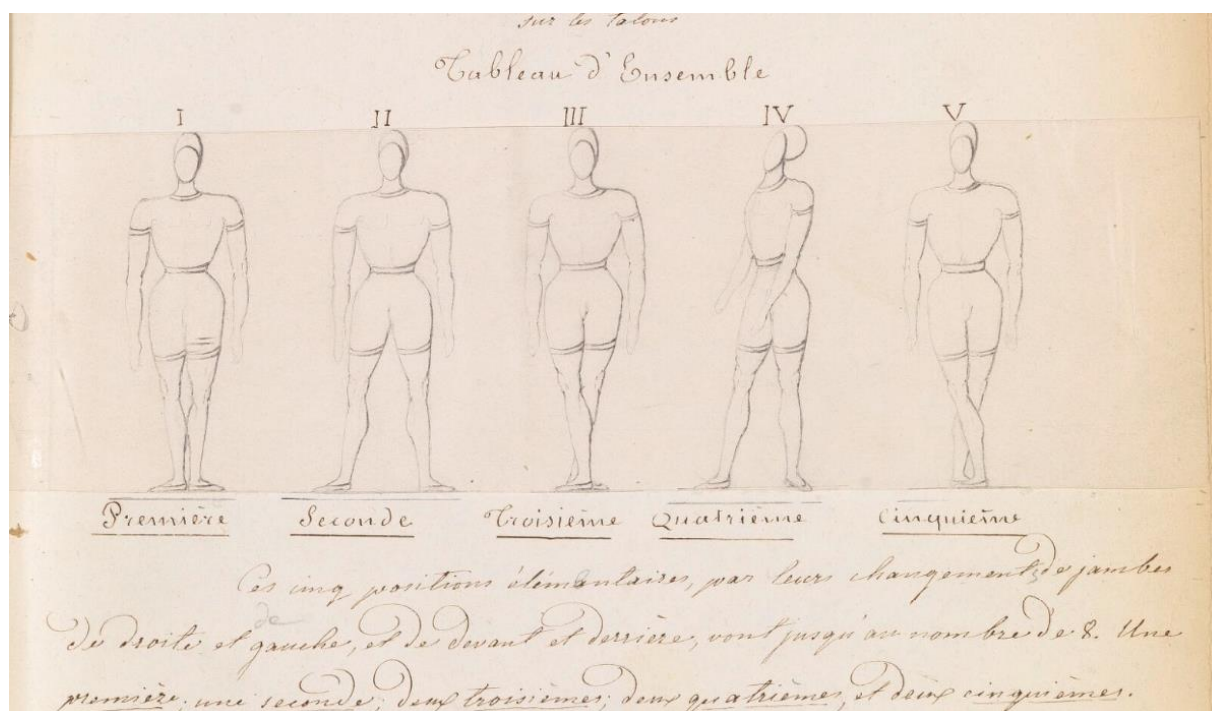 sur les talons
Tableau d'Ensemble
I II III IV V
Première Seconde Troisième Quatrième Cinquième
Ces cinq positions élémentaires, par leurs changements de jambes
de droite et de gauche, et de devant et derrière, vont jusqu'au nombre de 8. Une
première; une seconde; deux troisièmes; deux quatrièmes, et deux cinquièmes.